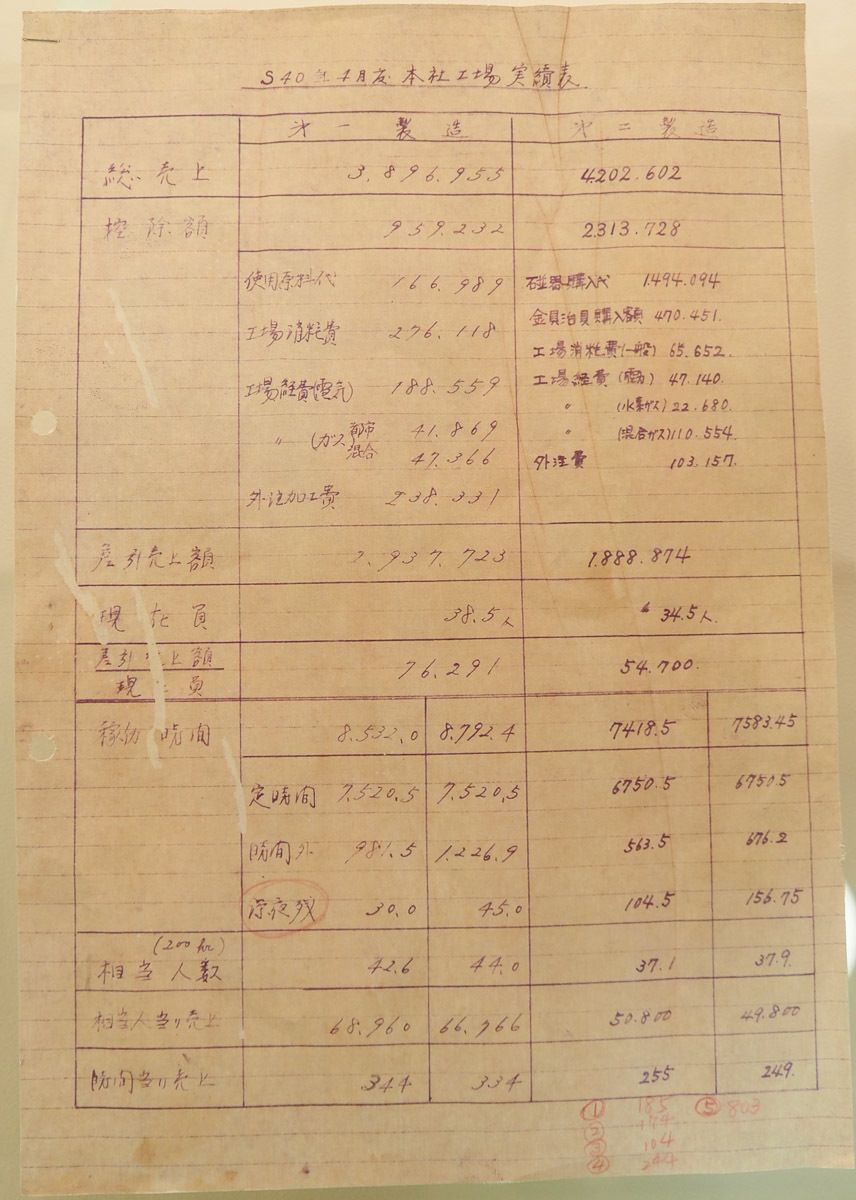 S40年4月度 本社工場 実績表
第一製造 第二製造
総売上 3.896.955 4202.602
控除額 959.232 2313.728
使用原料代 166.989 磁器購入代 1.494.094
金具治具購入額 470.451.
工場消耗費 276.118 工場消耗費(一般) 65.652.
工場経費(電気) 188.559 工場経費(電力) 47.140.
〃 (水素ガス) 22.680.
〃 (ガス 都市 41.869 〃 (混合ガス) 110.554.
混合 47.366 外注費 103.157.
外注加工費 238.331
差引売上額 2.937.723 1.888.874
現在員 38.5人 34.5人.
差引売上額
現在員 76.291 54.700.
稼动時間 8.532.0 8.792.4 7418.5 7583.45
定時間 7.520.5 7.520.5 6750.5 6750.5
時間外 981.5 1.226.9 563.5 676.2
深夜残 30.0 45.0 104.5 156.75
(200 hr)
相当人数 42.6 44.0 37.1 37.9
相当人当り売上 68.960 66.766 50.800 49.800
時間当り売上 344 334 255 249.
① 185 ⑤ 803
②
③ 104
④